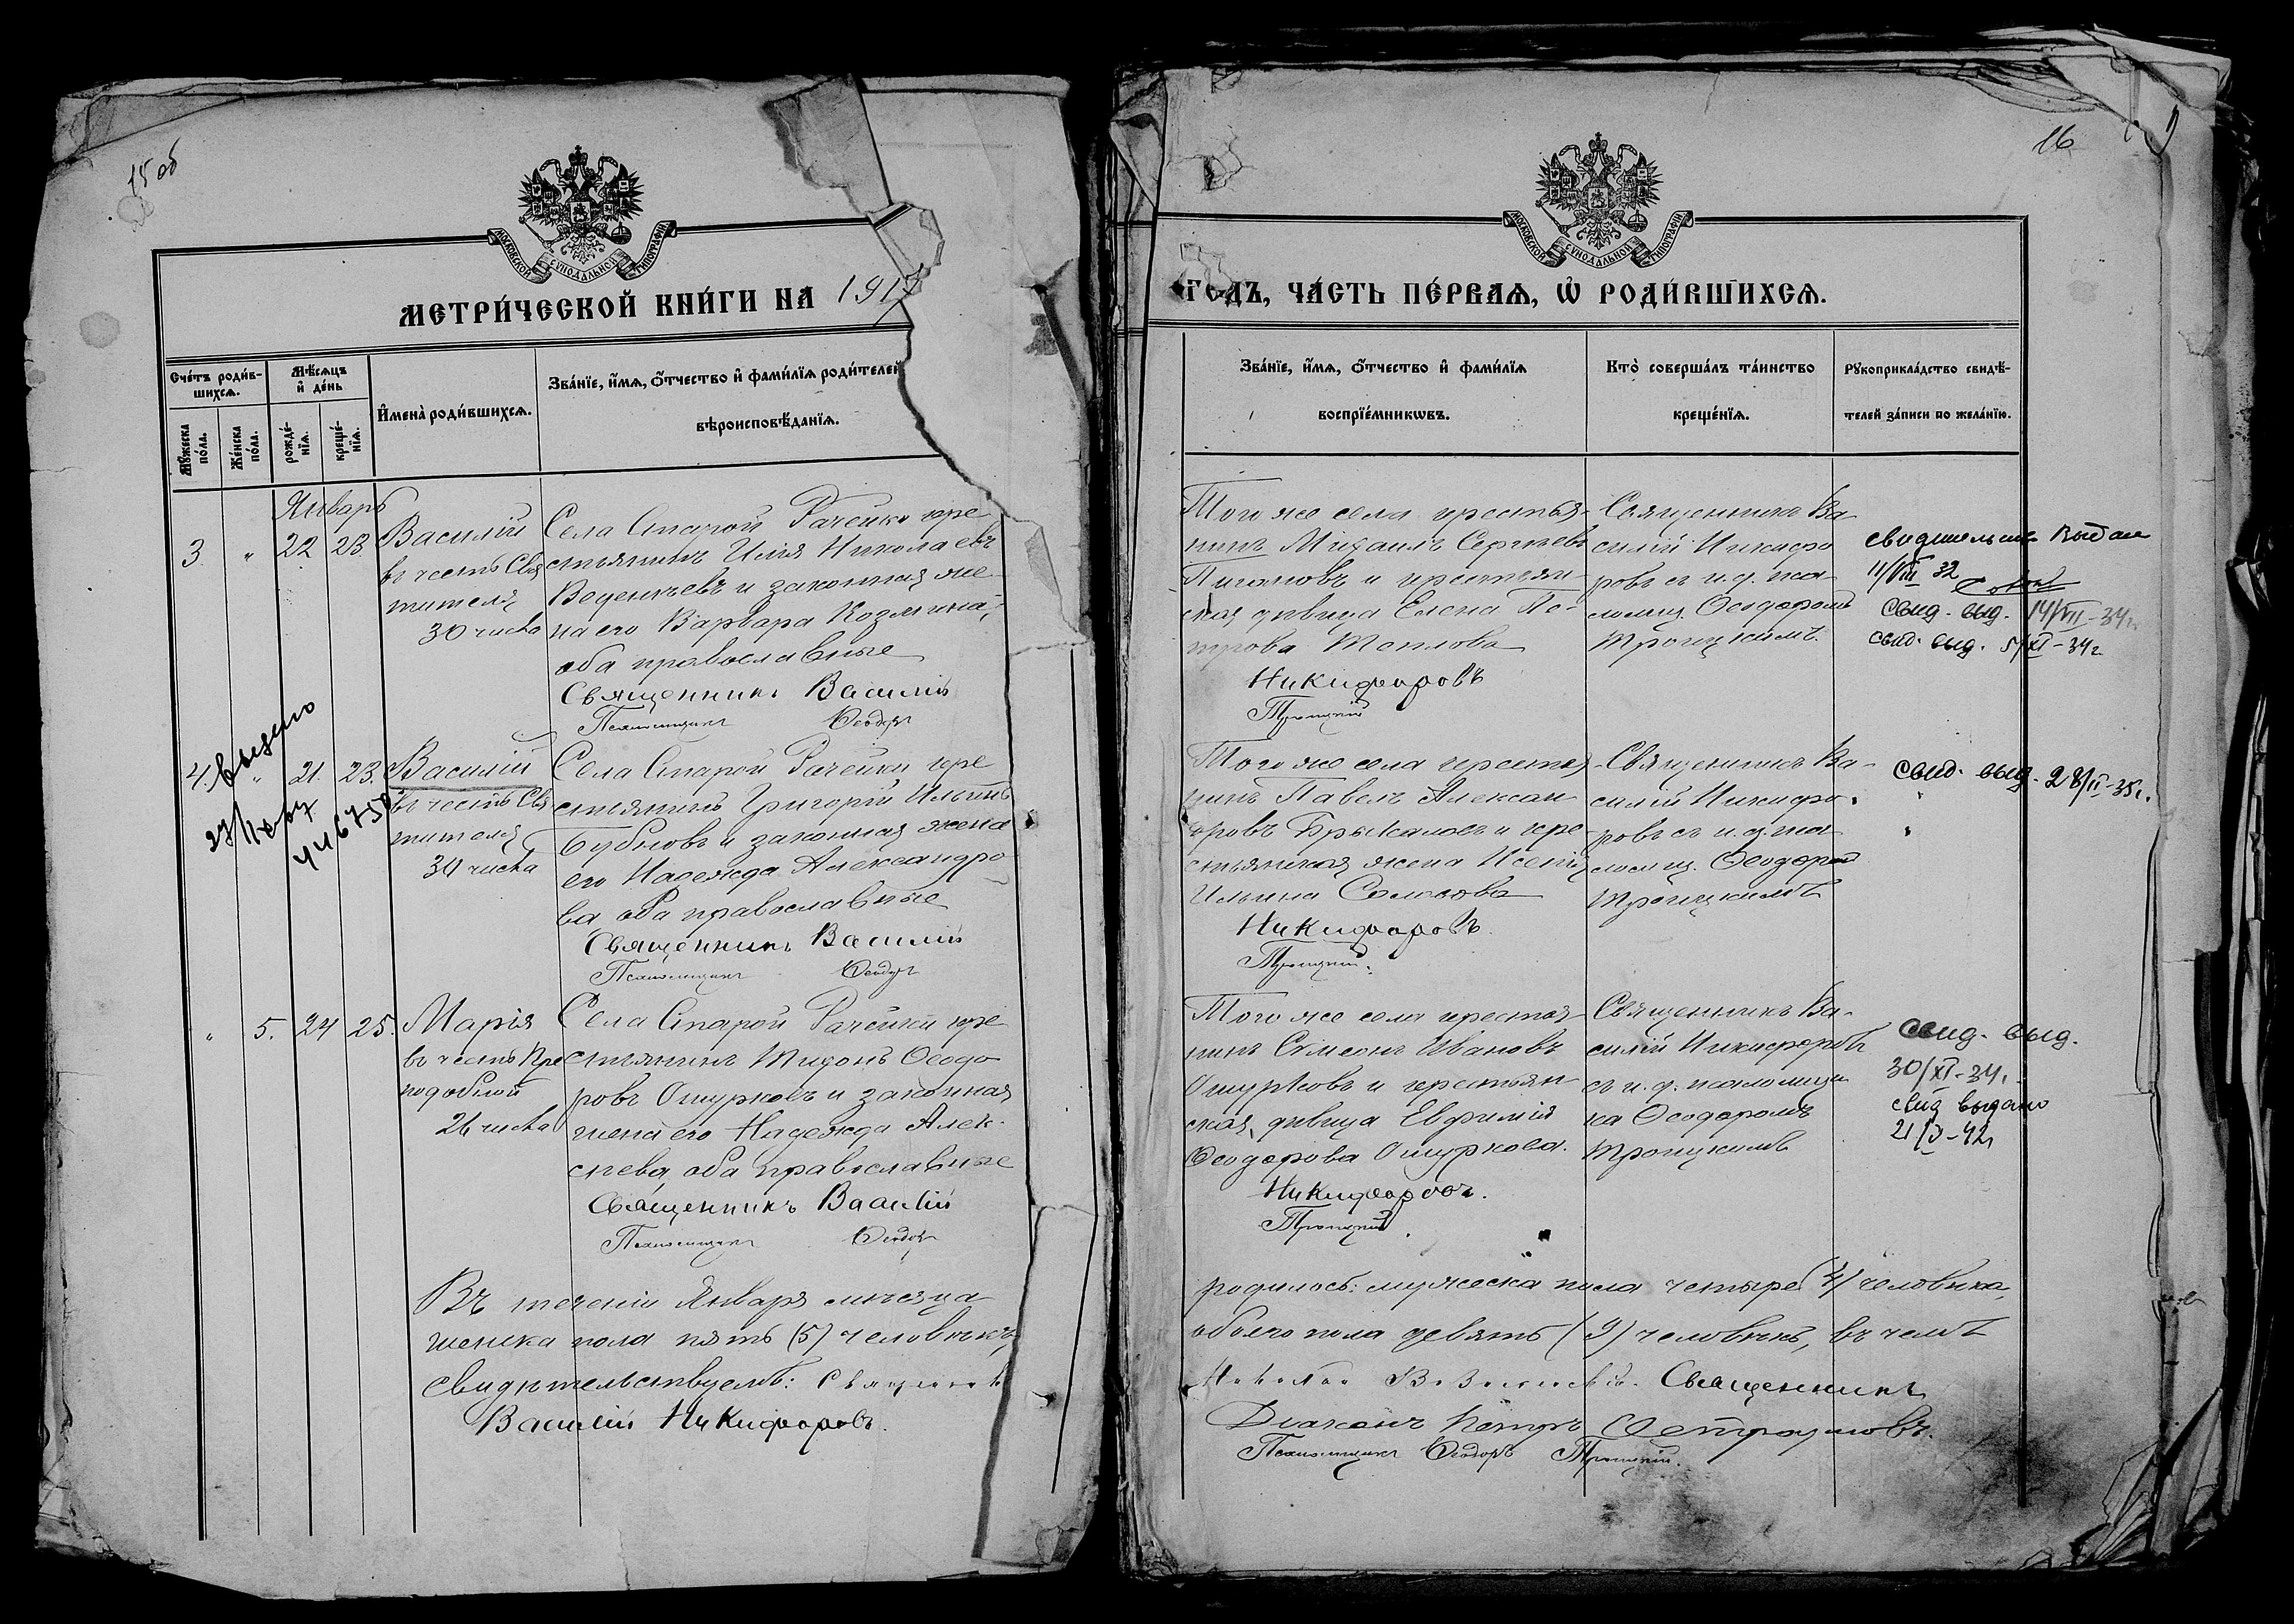 15 об
МОСКОВСКОЙ СѴНОДАЛЬНОЙ ТИПОГРАФІИ
МЕТРИ́ЧЕСКОЙ КНИ́ГИ НА 1917
Сче́тъ роди́в-
шихсѧ.
Мѣ́сѧцъ
и҆ де́нь
Мꙋ́жеска
по́ла.
Же́нска
по́ла.
рожде́-
нїѧ.
креще́-
нїѧ.
И҆мена̀ роди́вшихсѧ.
Зва́нїе, и҆́мѧ, ѻ҆́тчество и҆ фами́лїѧ роди́телей
вѣроисповѣ́данїѧ.
Январь
3. " 22 23
Василій
въ честь Свя
тителя,
30 числа
Села Старой Рачейки кре
стьянинъ Илія Николаевъ
и законная же-
на его Варвара Козмина,
оба православные
Священникъ Василій
Псаломщикъ Ѳеодоръ
4. " 21. 23.
выдано
Василій
въ честь Свя
тителя
30 числа
Села Старой Рачейки кре
стьянинъ Григорій Ильинъ
Бубновъ и законная жена
его Надежда Александро
ва оба православные
Священникъ Василій
Псаломщикъ Ѳеодоръ
" 5. 24 25.
Марія
въ честь Пре
подобной
26 числа
Села Старой Рачейки кре
стьянинъ Тихонъ Ѳеодо
ровъ Ошурковъ и законная
жена его Надежда Алек-
сѣева, оба православные
Священникъ Василій
Псаломщикъ Ѳеодоръ
Въ теченіи Январѣ мѣсяца
женска пола пять (5) человѣкъ,
свидѣтельствуемъ: Священникъ
Василій Никифоровъ.
16
МОСКОВСКОЙ СѴНОДАЛЬНОЙ ТИПОГРАФІИ
ГОДЪ, ЧА́СТЬ ПЕ́РВАѦ, Ѽ РОДИ́ВШИХСѦ.
Зва́нїе, и҆́мѧ, ѻ҆́тчество и҆ фами́лїѧ
воспрїе́мникѡвъ.
Кто̀ соверша́лъ та́инство
креще́нїѧ.
Рꙋкоприкла́дство свидѣ́-
телей за́писи по жела́нїю.
Того же села крестья-
нинъ Михаилъ Сергѣевъ
и крестьян-
ская дѣвица Елена Пе-
трова Теплова
Никифоровъ
Троицкій
Священникъ Ва
силій Никифо
ровъ с и. д. пса-
ломщ. Ѳеодоромъ
Троицкимъ.
свидетельство выдан
11/VIII 32
свид. выд. 14/VII-34г.
свид. выд. 5/XI-34г.
Того же села крестья-
нинъ Павелъ Алексан
дровъ и кре-
стьянская жена
Ильина
Никифоровъ.
Троицкій.
Священникъ Ва-
силій Никифо-
ровъ с и. д. пса-
ломщ. Ѳеодоромъ
Троицкимъ
свид. выд. 28/II-35г.
Того же села крестья-
нинъ Симеонъ Ивановъ
Ошурковъ и крестьян-
ская дѣвица Евфимія
Ѳеодорова Ошуркова.
Никифоровъ.
Троицкій.
Священникъ Ва-
силій Никифоровъ
с и. д. псаломщи
ка Ѳеодоромъ
Троицкимъ
свид. выд.
30/XI-34г.
свид выдано
родилось: мужеска пола четыре (4) человѣка,
обоего пола девять (9) человѣкъ, въ чемъ
Священникъ
Діаконъ Петръ
Псаломщикъ Ѳеодоръ Троицкій.